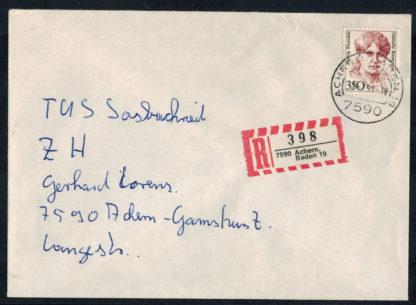 TUS Sasbachried
Z H
Gerhard Lorenz.
7590 Achern-Gamshurst.
Langestr..
R
398
7590 Achern,
Baden 19
350
ACHERN
7590